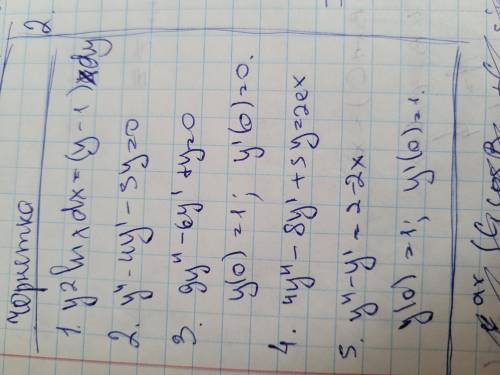 Чернетка
1. y2 ln x dx = (y - 1) dy
2. y" - 4y' - 5y = 0
3. 9y" - 6y' + y = 0
y(0) = 1; y'(0) = 0.
4. 4y" - 8y' + 5y = 2ex
5. y" - y' = 2 - 2x
y(0) = 1; y'(0) = 1.
2.